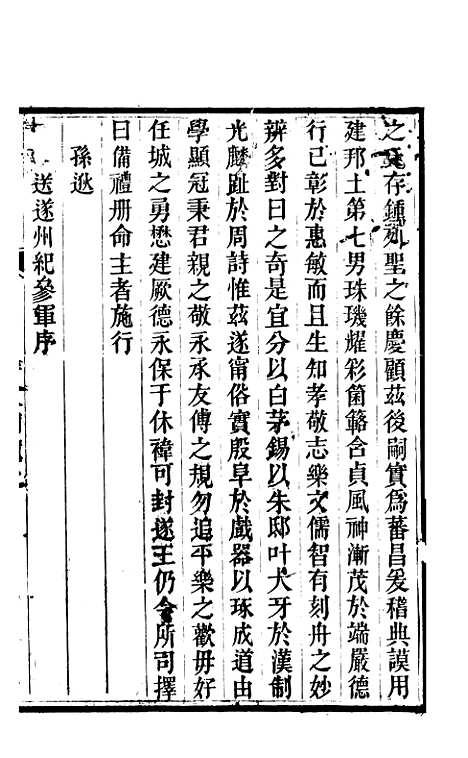 之文存鍾列聖之餘慶顧茲後嗣實爲蕃昌爰稽典謨用
建邦土第七男珠璣耀彩箘簵含貞風神漸茂於端嚴德
行已彰於惠敏而且生知孝敬志樂文儒智有刻舟之妙
辨多對日之奇是宜分以白茅錫以朱邸叶犬牙於漢制
光麟趾於周詩惟茲遂甯俗實殷阜於戲器以琢成道由
學顯冠秉君親之敬永承友傅之規勿追平樂之歡毋好
任城之勇懋建厥德永保于休褘可封遂王仍令所司擇
日備禮册命主者施行
孫逖
送遂州紀參軍序